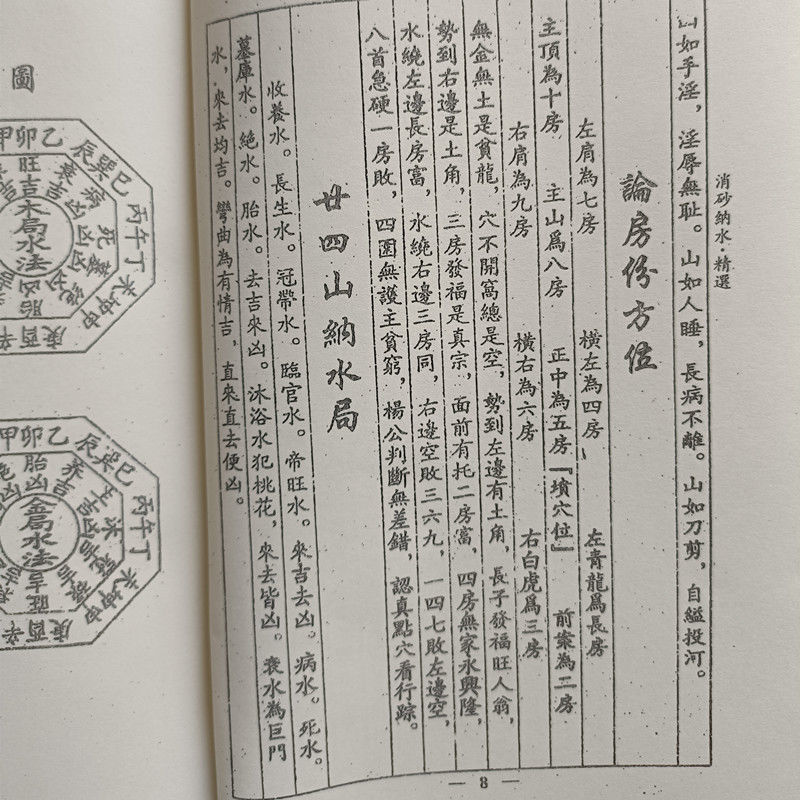 消砂納水·精選
山如手淫，淫辱無恥。山如人睡，長病不離。山如刀剪，自縊投河。
論房份方位
左肩為七房 橫左為四房 左青龍爲長房
主頂為十房 主山爲八房 正中為五房『墳穴位』 前案為二房
右肩為九房 橫右為六房 右白虎爲三房
無金無土是貧龍，穴不開窩總是空，勢到左邊有土角，長子發福旺人翁，
勢到右邊是土角，三房發福是真宗，面前有托二房富，四房無家永興隆，
水繞左邊長房富，水繞右邊三房同，右邊空敗三六九，一四七敗左邊空，
八首急硬一房敗，四圍無護主貧窮，楊公判斷無差錯，認真點穴看行踪。
廿四山納水局
收養水。長生水。冠帶水。臨官水。帝旺水。來吉去凶。病水。死水。
墓庫水。絶水。胎水。去吉來凶。沐浴水犯桃花，來去皆凶。衰水為巨門
水，來去均吉。彎曲為有情吉，直來直去便凶。
— 8 —
圖
甲卯乙
辰巽巳
丙午丁
未坤申
庚酉辛
旺吉
衰吉
病凶
死凶
墓凶
絕凶
胎凶
木局水法
甲卯乙
辰巽巳
丙午丁
未坤申
庚酉辛
胎凶
養吉
金局水法